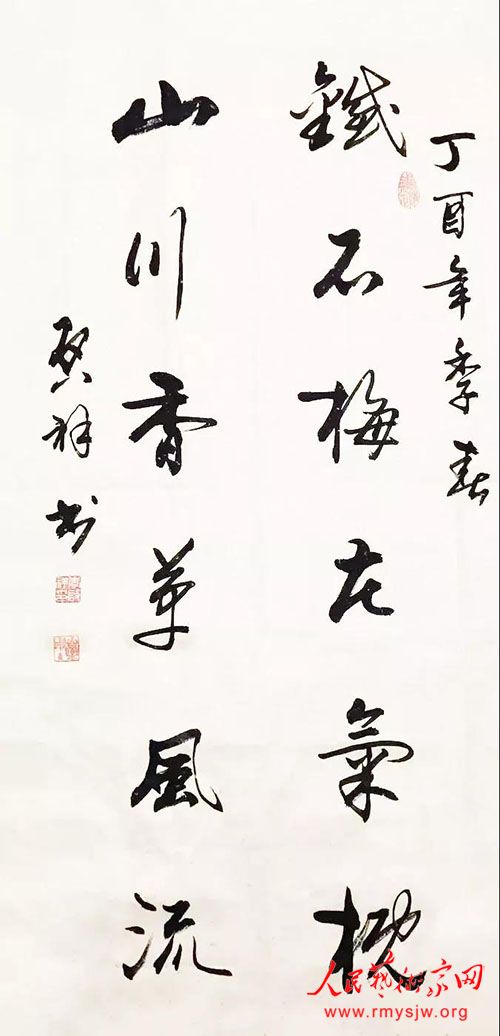 丁酉年季春
鐵石梅花氣概
山川香草風流
啓祥书
人民藝術家网
www.rmysjw.org